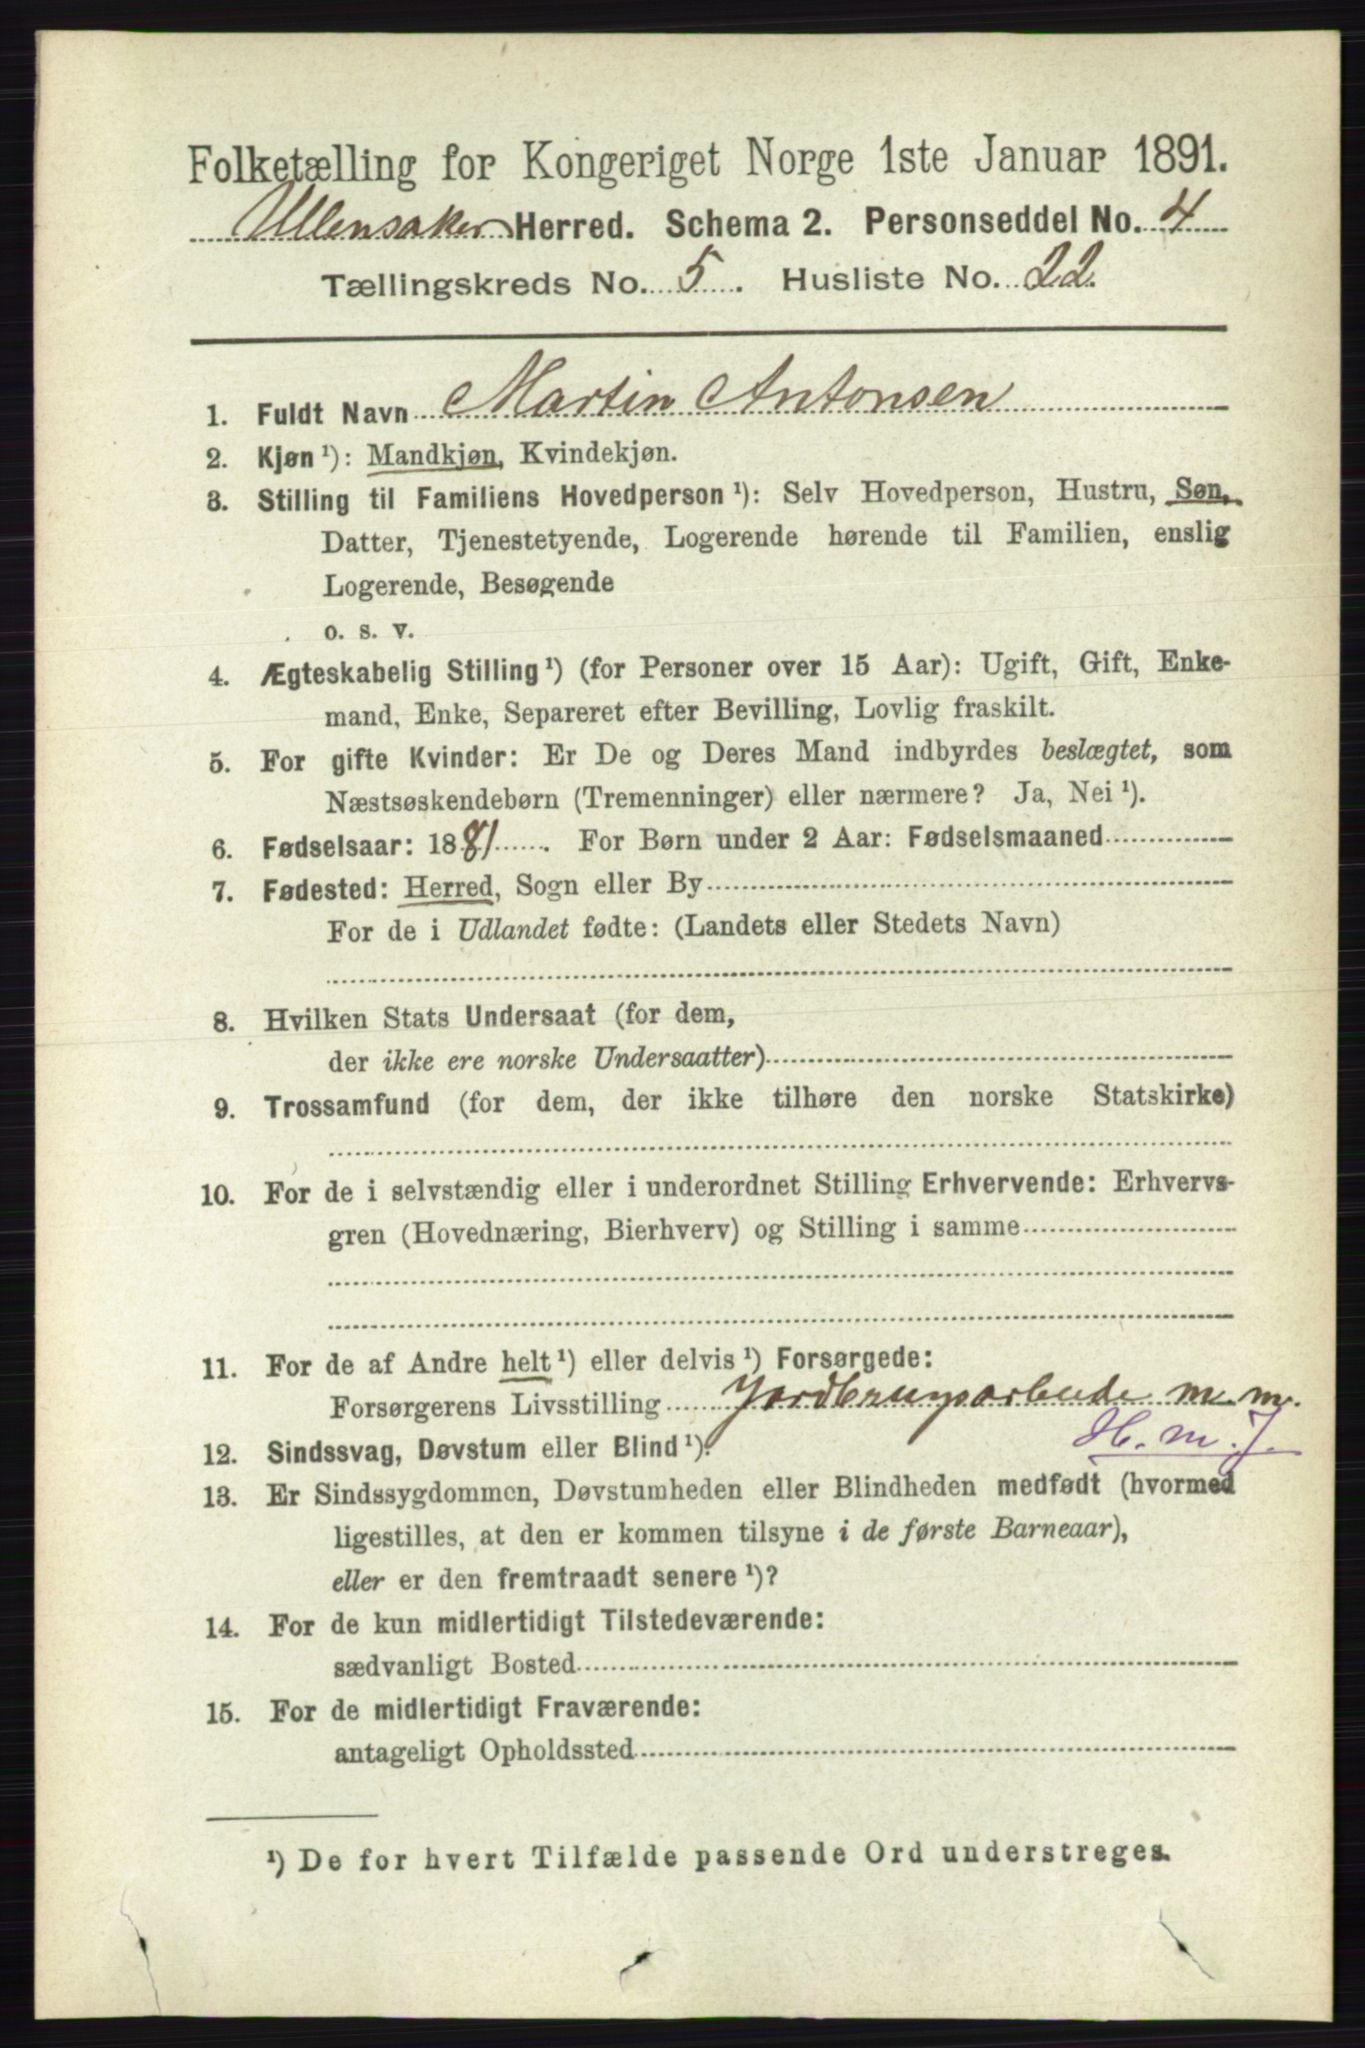 Folketælling for Kongeriget Norge 1ste Januar 1891.
Ullensaker Herred. Schema 2. Personseddel No. 4
Tællingskreds No. 5. Husliste No. 22.
1. Fuldt Navn Martin Antonsen
2. Kjøn ¹): Mandkjøn, Kvindekjøn.
3. Stilling til Familiens Hovedperson ¹): Selv Hovedperson, Hustru, Søn,
Datter, Tjenestetyende, Logerende hørende til Familien, enslig
Logerende, Besøgende
o. s. v.
4. Ægteskabelig Stilling ¹) (for Personer over 15 Aar): Ugift, Gift, Enke-
mand, Enke, Separeret efter Bevilling, Lovlig fraskilt.
5. For gifte Kvinder: Er De og Deres Mand indbyrdes beslægtet, som
Næstsøskendebørn (Tremenninger) eller nærmere? Ja, Nei ¹).
6. Fødselsaar: 1881. For Børn under 2 Aar: Fødselsmaaned
7. Fødested: Herred, Sogn eller By
For de i Udlandet fødte: (Landets eller Stedets Navn)
8. Hvilken Stats Undersaat (for dem,
der ikke ere norske Undersaatter)
9. Trossamfund (for dem, der ikke tilhøre den norske Statskirke)
10. For de i selvstændig eller i underordnet Stilling Erhvervende: Erhvervs-
gren (Hovednæring, Bierhverv) og Stilling i samme
11. For de af Andre helt ¹) eller delvis ¹) Forsørgede:
Forsørgerens Livsstilling Jordbrugsarbeide m. m.
H. m. J.
12. Sindssvag, Døvstum eller Blind ¹).
13. Er Sindssygdommen, Døvstumheden eller Blindheden medfødt (hvormed
ligestilles, at den er kommen tilsyne i de første Barneaar),
eller er den fremtraadt senere ¹)?
14. For de kun midlertidigt Tilstedeværende:
sædvanligt Bosted
15. For de midlertidigt Fraværende:
antageligt Opholdssted
¹) De for hvert Tilfælde passende Ord understreges.